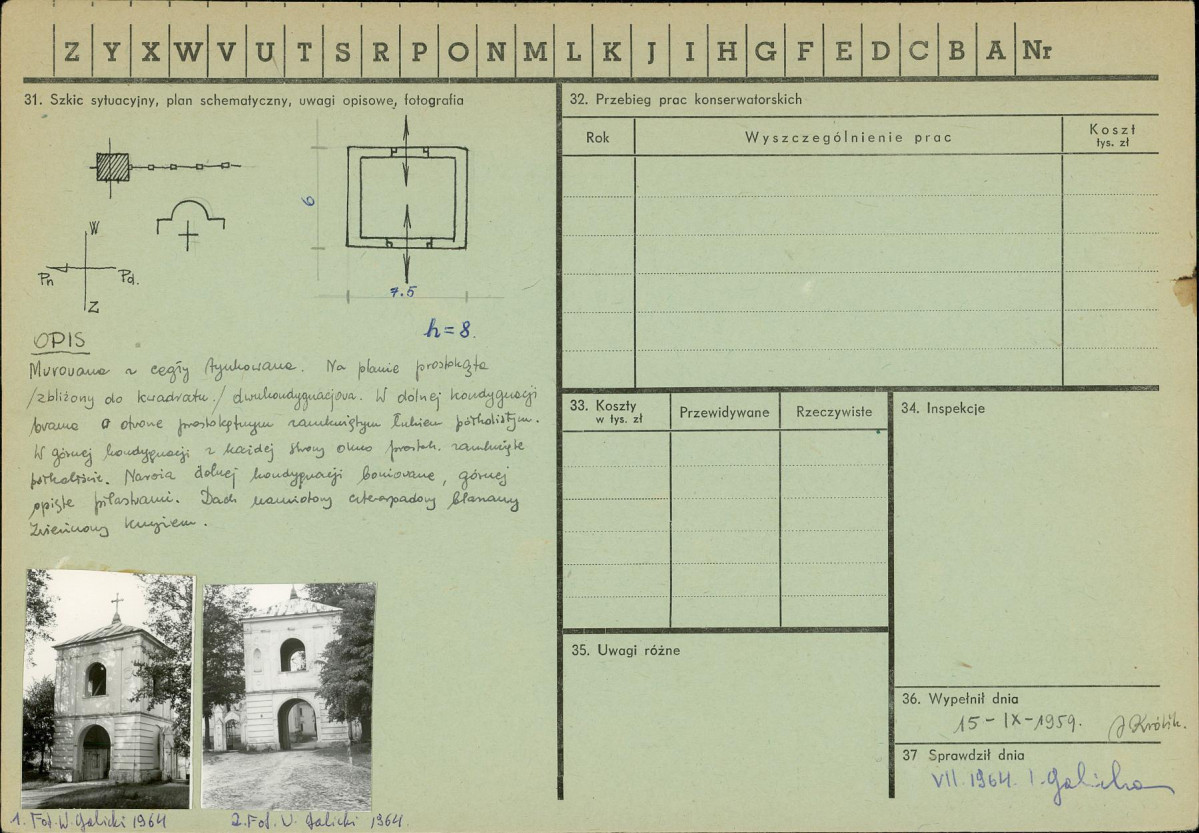 Z Y X W V U T S R P O N M L K J I H G F E D C B A Nr
31. Szkic sytuacyjny, plan schematyczny, uwagi opisowe, fotografia
6
7.5
h = 8.
W
Pn Pd.
Z
OPIS
Murowana z cegły tynkowana. Na planie prostokąta
/zbliżony do kwadratu/ dwukondygnacjowa. W dolnej kondygnacji
brama o otworze prostokątnym zamkniętym łukiem półkolistym.
W górnej kondygnacji z każdej strony okno prostok. zamknięte
półkoliście. Naroża dolnej kondygnacji boniowane, górnej
opięte pilastrami. Dach namiotowy czterospadowy blaszany
zwieńczony krzyżem.
1. Fot. W. Galicki 1964
2. Fot. W. Galicki 1964.
32. Przebieg prac konserwatorskich
Rok Wyszczególnienie prac Koszt tys. zł
33. Koszty w tys. zł Przewidywane Rzeczywiste
34. Inspekcje
35. Uwagi różne
36. Wypełnił dnia
15-IX-1959. J Królik.
37 Sprawdził dnia
VII 1964. I. Galicka